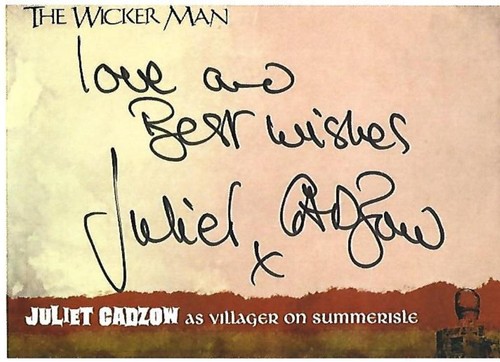 THE WICKER MAN
love and
Best wishes
Juliet Cadzow
x
JULIET CADZOW AS VILLAGER ON SUMMERISLE